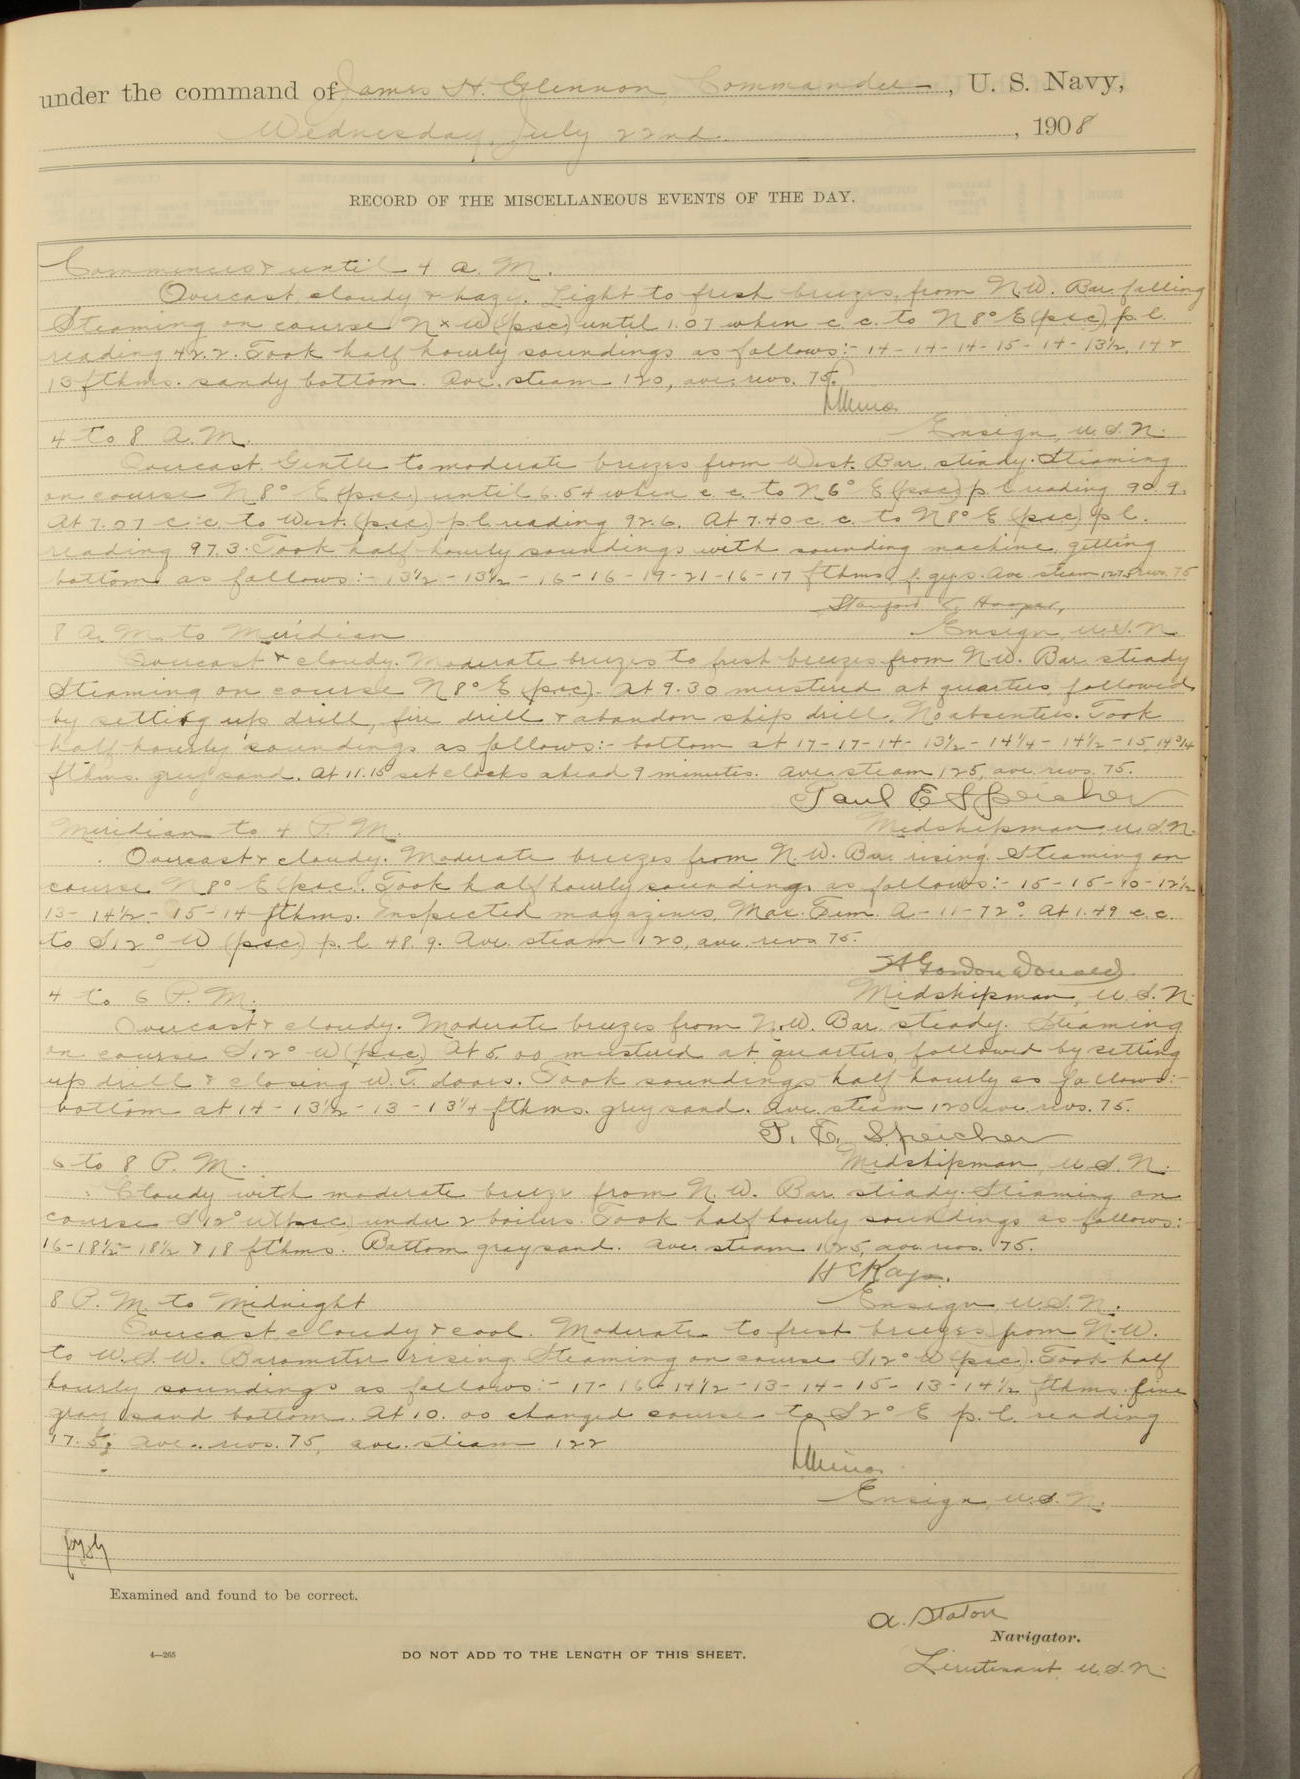 under the command of James H. Glennon, Commander, U. S. Navy,
Wednesday, July 22nd., 1908
RECORD OF THE MISCELLANEOUS EVENTS OF THE DAY.
Commences & until 4 A. M.
Overcast cloudy & hazy. Light to fresh breezes from N.W. Bar. falling
Steaming on course N x W (psc) until 1.07 when c. c. to N 8° E (psc) p. l.
reading 42.2. Took half hourly soundings as follows:- 14-14-14-15-14-13½, 14 &
13 fthms. sandy bottom. Ave. steam 120, ave. revs. 75.
Ensign, U.S.N.
4 to 8 A.M.
Overcast. Gentle to moderate breezes from West. Bar. steady. Steaming
on course N 8° E (psc.) until 6.54 when c. c. to N 6° E (psc) p l reading 90.9.
At 7.07 c. c. to West. (psc.) p l reading 92.6. At 7.40 c. c. to N 8° E (psc) p l.
reading 97.3. Took half hourly soundings with sounding machine, getting
bottom as follows:- 13½-13½-16-16-19-21-16-17 fthms, f. gy. s. Ave. steam 127.5 revs. 75
Stanford C. Hooper,
8 A. M. to Meridian
Ensign, U.S.N.
Overcast & cloudy. Moderate breezes to fresh breezes from N.W. Bar. steady
Steaming on course N 8° E (psc). At 9.30 mustered at quarters, followed
by setting up drill, fire drill & abandon ship drill. No absentees. Took
half hourly soundings as follows:- bottom at 17-17-14-13½-14¼-14½-15, 14¾
fthms. grey sand. At 11.15 set clocks ahead 9 minutes. Ave. steam 125, ave. revs. 75.
Paul E Speicher
Meridian to 4 P. M.
Midshipman, U.S.N.
Overcast & cloudy. Moderate breezes from N. W. Bar. rising. Steaming on
course N 8° E (psc.). Took half hourly soundings as follows:- 15-15-10-12½
13-14½-15-14 fthms. Inspected magazines. Max. Tem. A-11-72°. At 1.49 c. c.
to S 12° W (psc) p. l. 48.9. Ave. steam 120, ave. revs 75.
4 to 6 P. M.
Midshipman, U.S.N.
Overcast & cloudy. Moderate breezes from N.W. Bar. steady. Steaming
on course S 12° W (psc) At 5.00 mustered at quarters, followed by setting
up drill & closing W.T. doors. Took soundings half hourly as follows:-
bottom at 14-13½-13-13¼ fthms. grey sand. Ave. steam 120 ave. revs. 75.
P. E. Speicher
6 to 8 P. M.
Midshipman, U.S.N.
Cloudy with moderate breeze from N. W. Bar. steady. Steaming on
course S 12° W (psc) under 2 boilers. Took half hourly soundings as follows:-
16-18½-18½ & 18 fthms. Bottom gray sand. Ave. steam 125, ave. revs. 75.
H E Kays.
8 P. M. to Midnight
Ensign, U.S.N.
Overcast cloudy & cool. Moderate to fresh breezes from N.W.
to W.S.W. Barometer rising. Steaming on course S 12° W (psc). Took half
hourly soundings as follows:- 17-16-14½-13-14-15-13-14½ fthms. fine
gray sand bottom. At 10.00 changed course to S 2° E p. l. reading
17.5; ave. revs. 75, ave. steam 122
Ensign, U.S.N.
Examined and found to be correct.
A. Staton
Navigator.
4—265
DO NOT ADD TO THE LENGTH OF THIS SHEET.
Lieutenant, U.S.N.